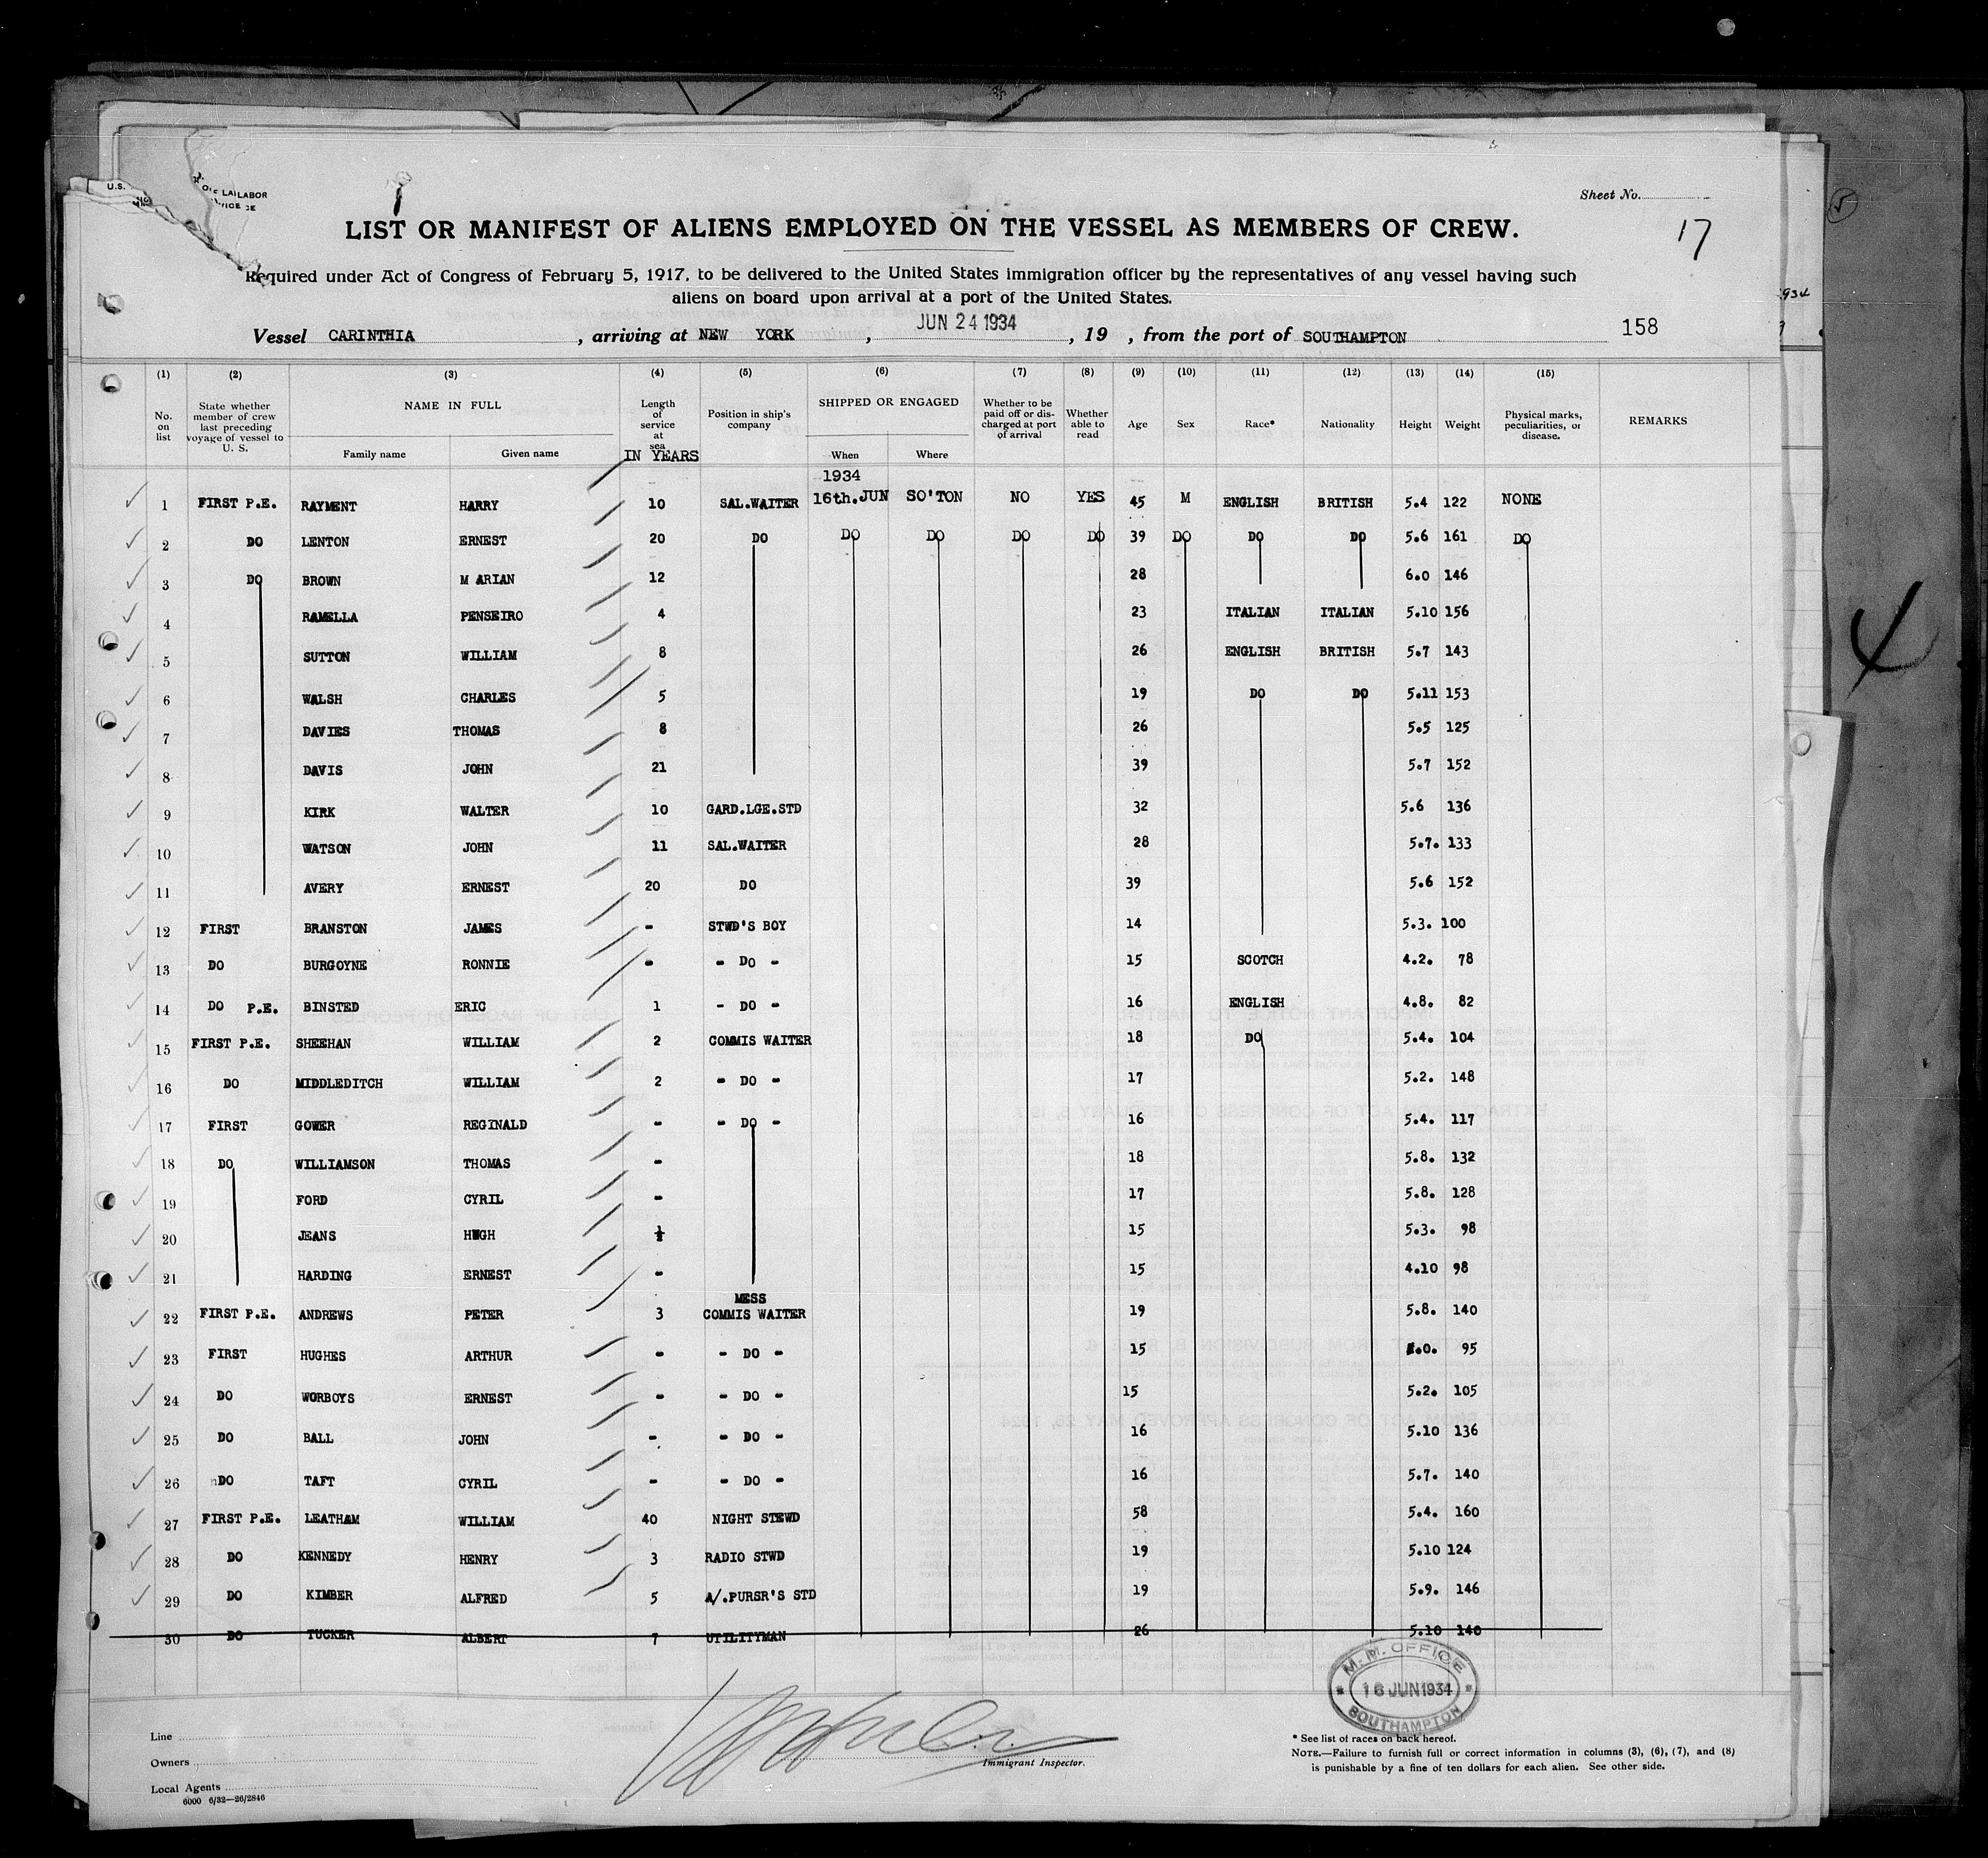 U.S.
LABOR
Sheet No.
17
LIST OR MANIFEST OF ALIENS EMPLOYED ON THE VESSEL AS MEMBERS OF CREW.
Required under Act of Congress of February 5, 1917, to be delivered to the United States immigration officer by the representatives of any vessel having such
aliens on board upon arrival at a port of the United States.
Vessel CARINTHIA, arriving at NEW YORK, JUN 24 1934, 19 , from the port of SOUTHAMPTON 158
(1) (2) (3) (4) (5) (6) (7) (8) (9) (10) (11) (12) (13) (14) (15)
No. on list State whether member of crew last preceding voyage of vessel to U. S. NAME IN FULL Family name Given name Length of service at sea IN YEARS Position in ship's company SHIPPED OR ENGAGED When Where Whether to be paid off or discharged at port of arrival Whether able to read Age Sex Race* Nationality Height Weight Physical marks, peculiarities, or disease. REMARKS
1934
1 FIRST P.E. RAYMENT HARRY 10 SAL.WAITER 16th.JUN SO'TON NO YES 45 M ENGLISH BRITISH 5.4 122 NONE
2 DO LENTON ERNEST 20 DO DO DO DO DO 39 DO DO DO 5.6 161 DO
3 DO BROWN M ARIAN 12 28 6.0 146
4 RAMELLA PENSEIRO 4 23 ITALIAN ITALIAN 5.10 156
5 SUTTON WILLIAM 8 26 ENGLISH BRITISH 5.7 143
6 WALSH CHARLES 5 19 DO DO 5.11 153
7 DAVIES THOMAS 8 26 5.5 125
8 DAVIS JOHN 21 39 5.7 152
9 KIRK WALTER 10 GARD.LGE.STD 32 5.6 136
10 WATSON JOHN 11 SAL.WAITER 28 5.7. 133
11 AVERY ERNEST 20 DO 39 5.6 152
12 FIRST BRANSTON JAMES - STWD'S BOY 14 5.3. 100
13 DO BURGOYNE RONNIE - - DO - 15 SCOTCH 4.2. 78
14 DO P.E. BINSTED ERIC 1 - DO - 16 ENGLISH 4.8. 82
15 FIRST P.E. SHEEHAN WILLIAM 2 COMMIS WAITER 18 DO 5.4. 104
16 DO MIDDLEDITCH WILLIAM 2 - DO - 17 5.2. 148
17 FIRST GOWER REGINALD - - DO - 16 5.4. 117
18 DO WILLIAMSON THOMAS - 18 5.8. 132
19 FORD CYRIL - 17 5.8. 128
20 JEANS HUGH ½ 15 5.3. 98
21 HARDING ERNEST - 15 4.10 98
22 FIRST P.E. ANDREWS PETER 3 MESS COMMIS WAITER 19 5.8. 140
23 FIRST HUGHES ARTHUR - - DO - 15 .0. 95
24 DO WORBOYS ERNEST - - DO - 15 5.2. 105
25 DO BALL JOHN - - DO - 16 5.10 136
26 DO TAFT CYRIL - - DO - 16 5.7. 140
27 FIRST P.E. LEATHAM WILLIAM 40 NIGHT STEWD 58 5.4. 160
28 DO KENNEDY HENRY 3 RADIO STWD 19 5.10 124
29 DO KIMBER ALFRED 5 A/.PURSR'S STD 19 5.9. 146
30 DO TUCKER ALBERT 7 UTILITYMAN 26 5.10 140
M.M. OFFICE
16 JUN 1934
SOUTHAMPTON
Line
Owners
Local Agents
6000 6/32—26/2846
Immigrant Inspector.
* See list of races on back hereof.
NOTE.—Failure to furnish full or correct information in columns (3), (6), (7), and (8)
is punishable by a fine of ten dollars for each alien. See other side.